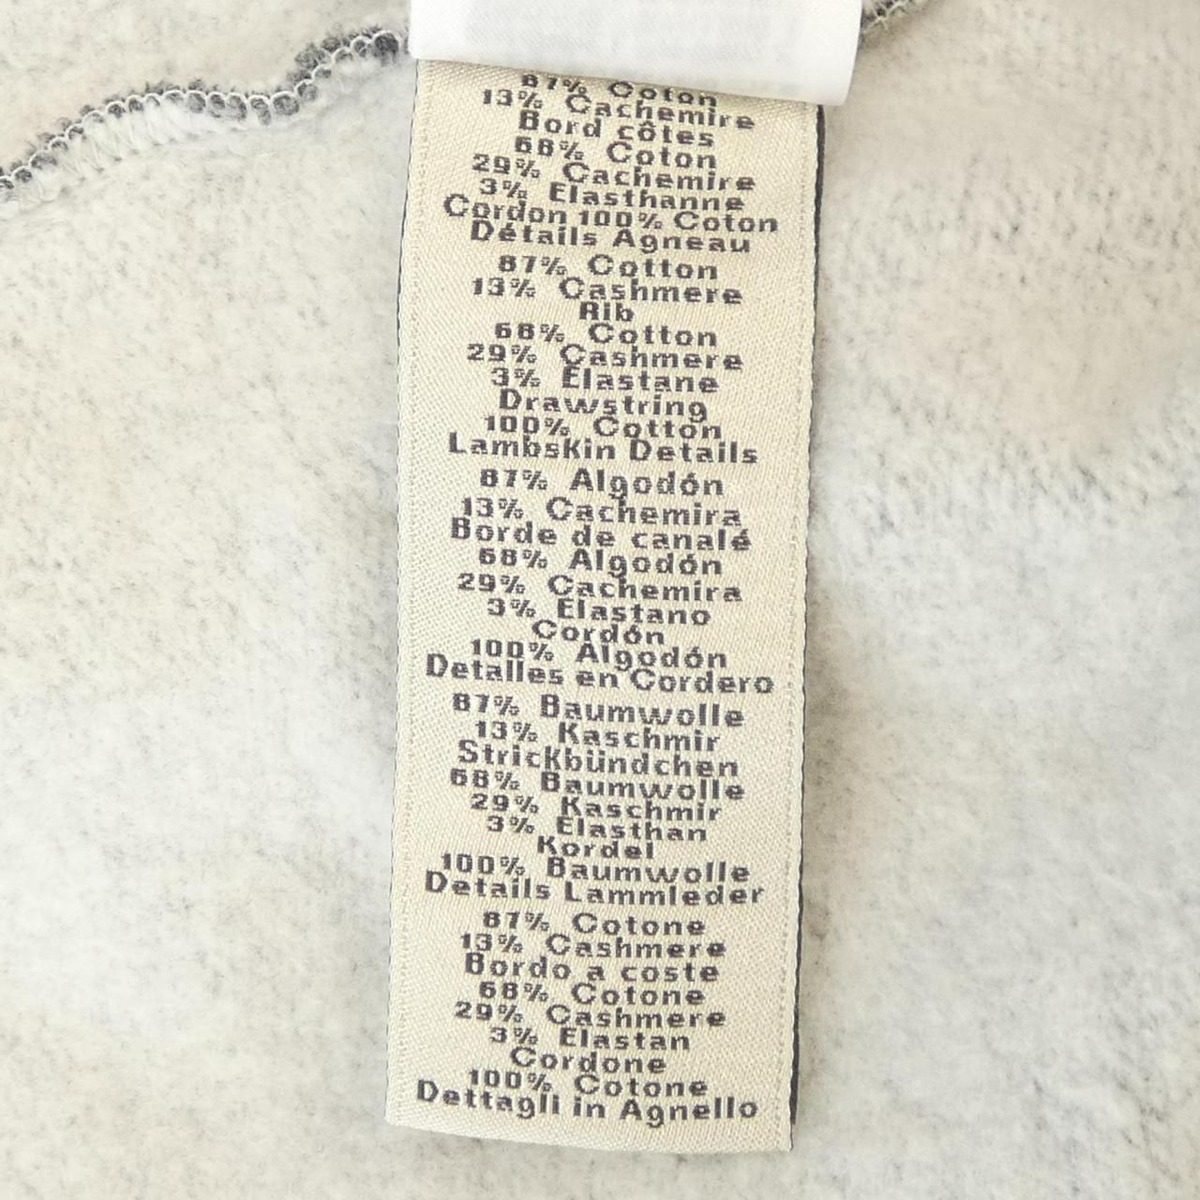 87% Coton
13% Cachemire
Bord côtes
68% Coton
29% Cachemire
3% Elasthanne
Cordon 100% Coton
Détails Agneau
87% Cotton
13% Cashmere
Rib
68% Cotton
29% Cashmere
3% Elastane
Drawstring
100% Cotton
Lambskin Details
87% Algodón
13% Cachemira
Borde de canalé
68% Algodón
29% Cachemira
3% Elastano
Cordón
100% Algodón
Detalles en Cordero
87% Baumwolle
13% Kaschmir
Strickbündchen
68% Baumwolle
29% Kaschmir
3% Elasthan
Kordel
100% Baumwolle
Details Lammleder
87% Cotone
13% Cashmere
Bordo a coste
68% Cotone
29% Cashmere
3% Elastan
Cordone
100% Cotone
Dettagli in Agnello